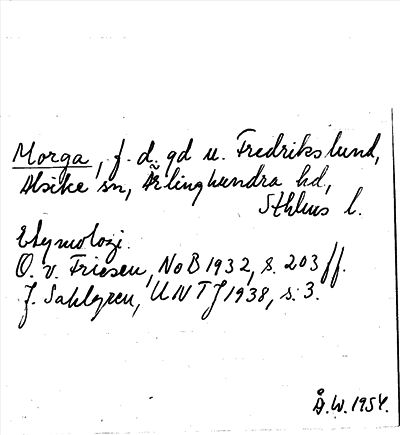 Morga, f. d. gd u. Fredrikslund,
Alsike sn, Ärlinghundra hd,
Sthlms l.
Etymologi.
O. v. Friesen, NoB 1932, s. 203 ff.
J. Sahlgren, UNTJ 1938, s. 3.
Å.W. 1954.